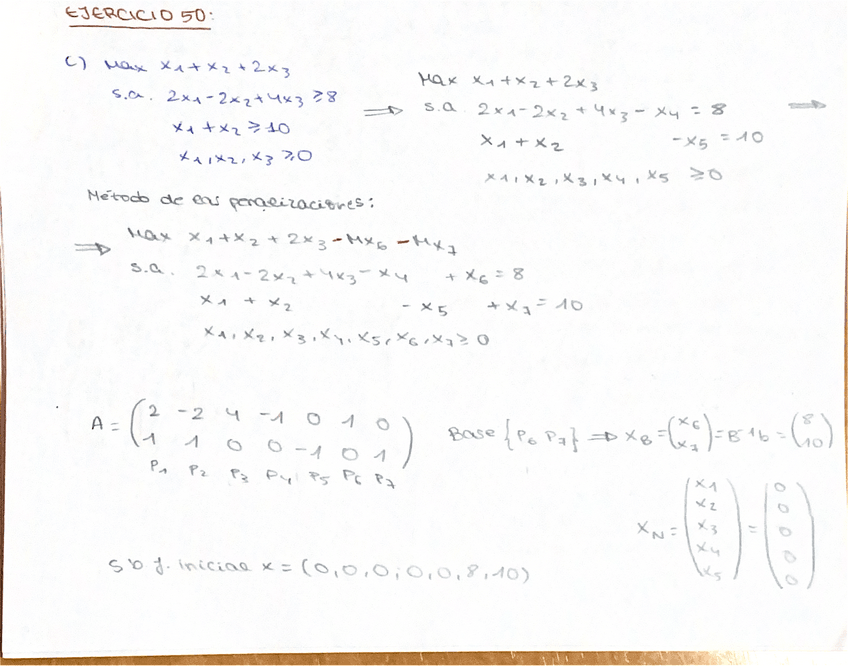 EJERCICIO 50:
C) Max x1 + x2 + 2x3
s.a. 2x1 - 2x2 + 4x3 ≥ 8
x1 + x2 ≥ 10
x1, x2, x3 ≥ 0
⟹
Max x1 + x2 + 2x3
s.a. 2x1 - 2x2 + 4x3 - x4 = 8
x1 + x2 - x5 = 10
x1, x2, x3, x4, x5 ≥ 0
⟹
Método de las penalizaciones:
⟹ Max x1 + x2 + 2x3 - Mx6 - Mx7
s.a. 2x1 - 2x2 + 4x3 - x4 + x6 = 8
x1 + x2 - x5 + x7 = 10
x1, x2, x3, x4, x5, x6, x7 ≥ 0
A = (2 -2 4 -1 0 1 0
1 1 0 0 -1 0 1)
P1 P2 P3 P4 P5 P6 P7
Base {P6 P7} ⟹ xB = (x6 x7) = B-1b = (8 10)
xN = (x1 x2 x3 x4 x5) = (0 0 0 0 0)
s b f. inicial x = (0, 0, 0, 0, 0, 8, 10)